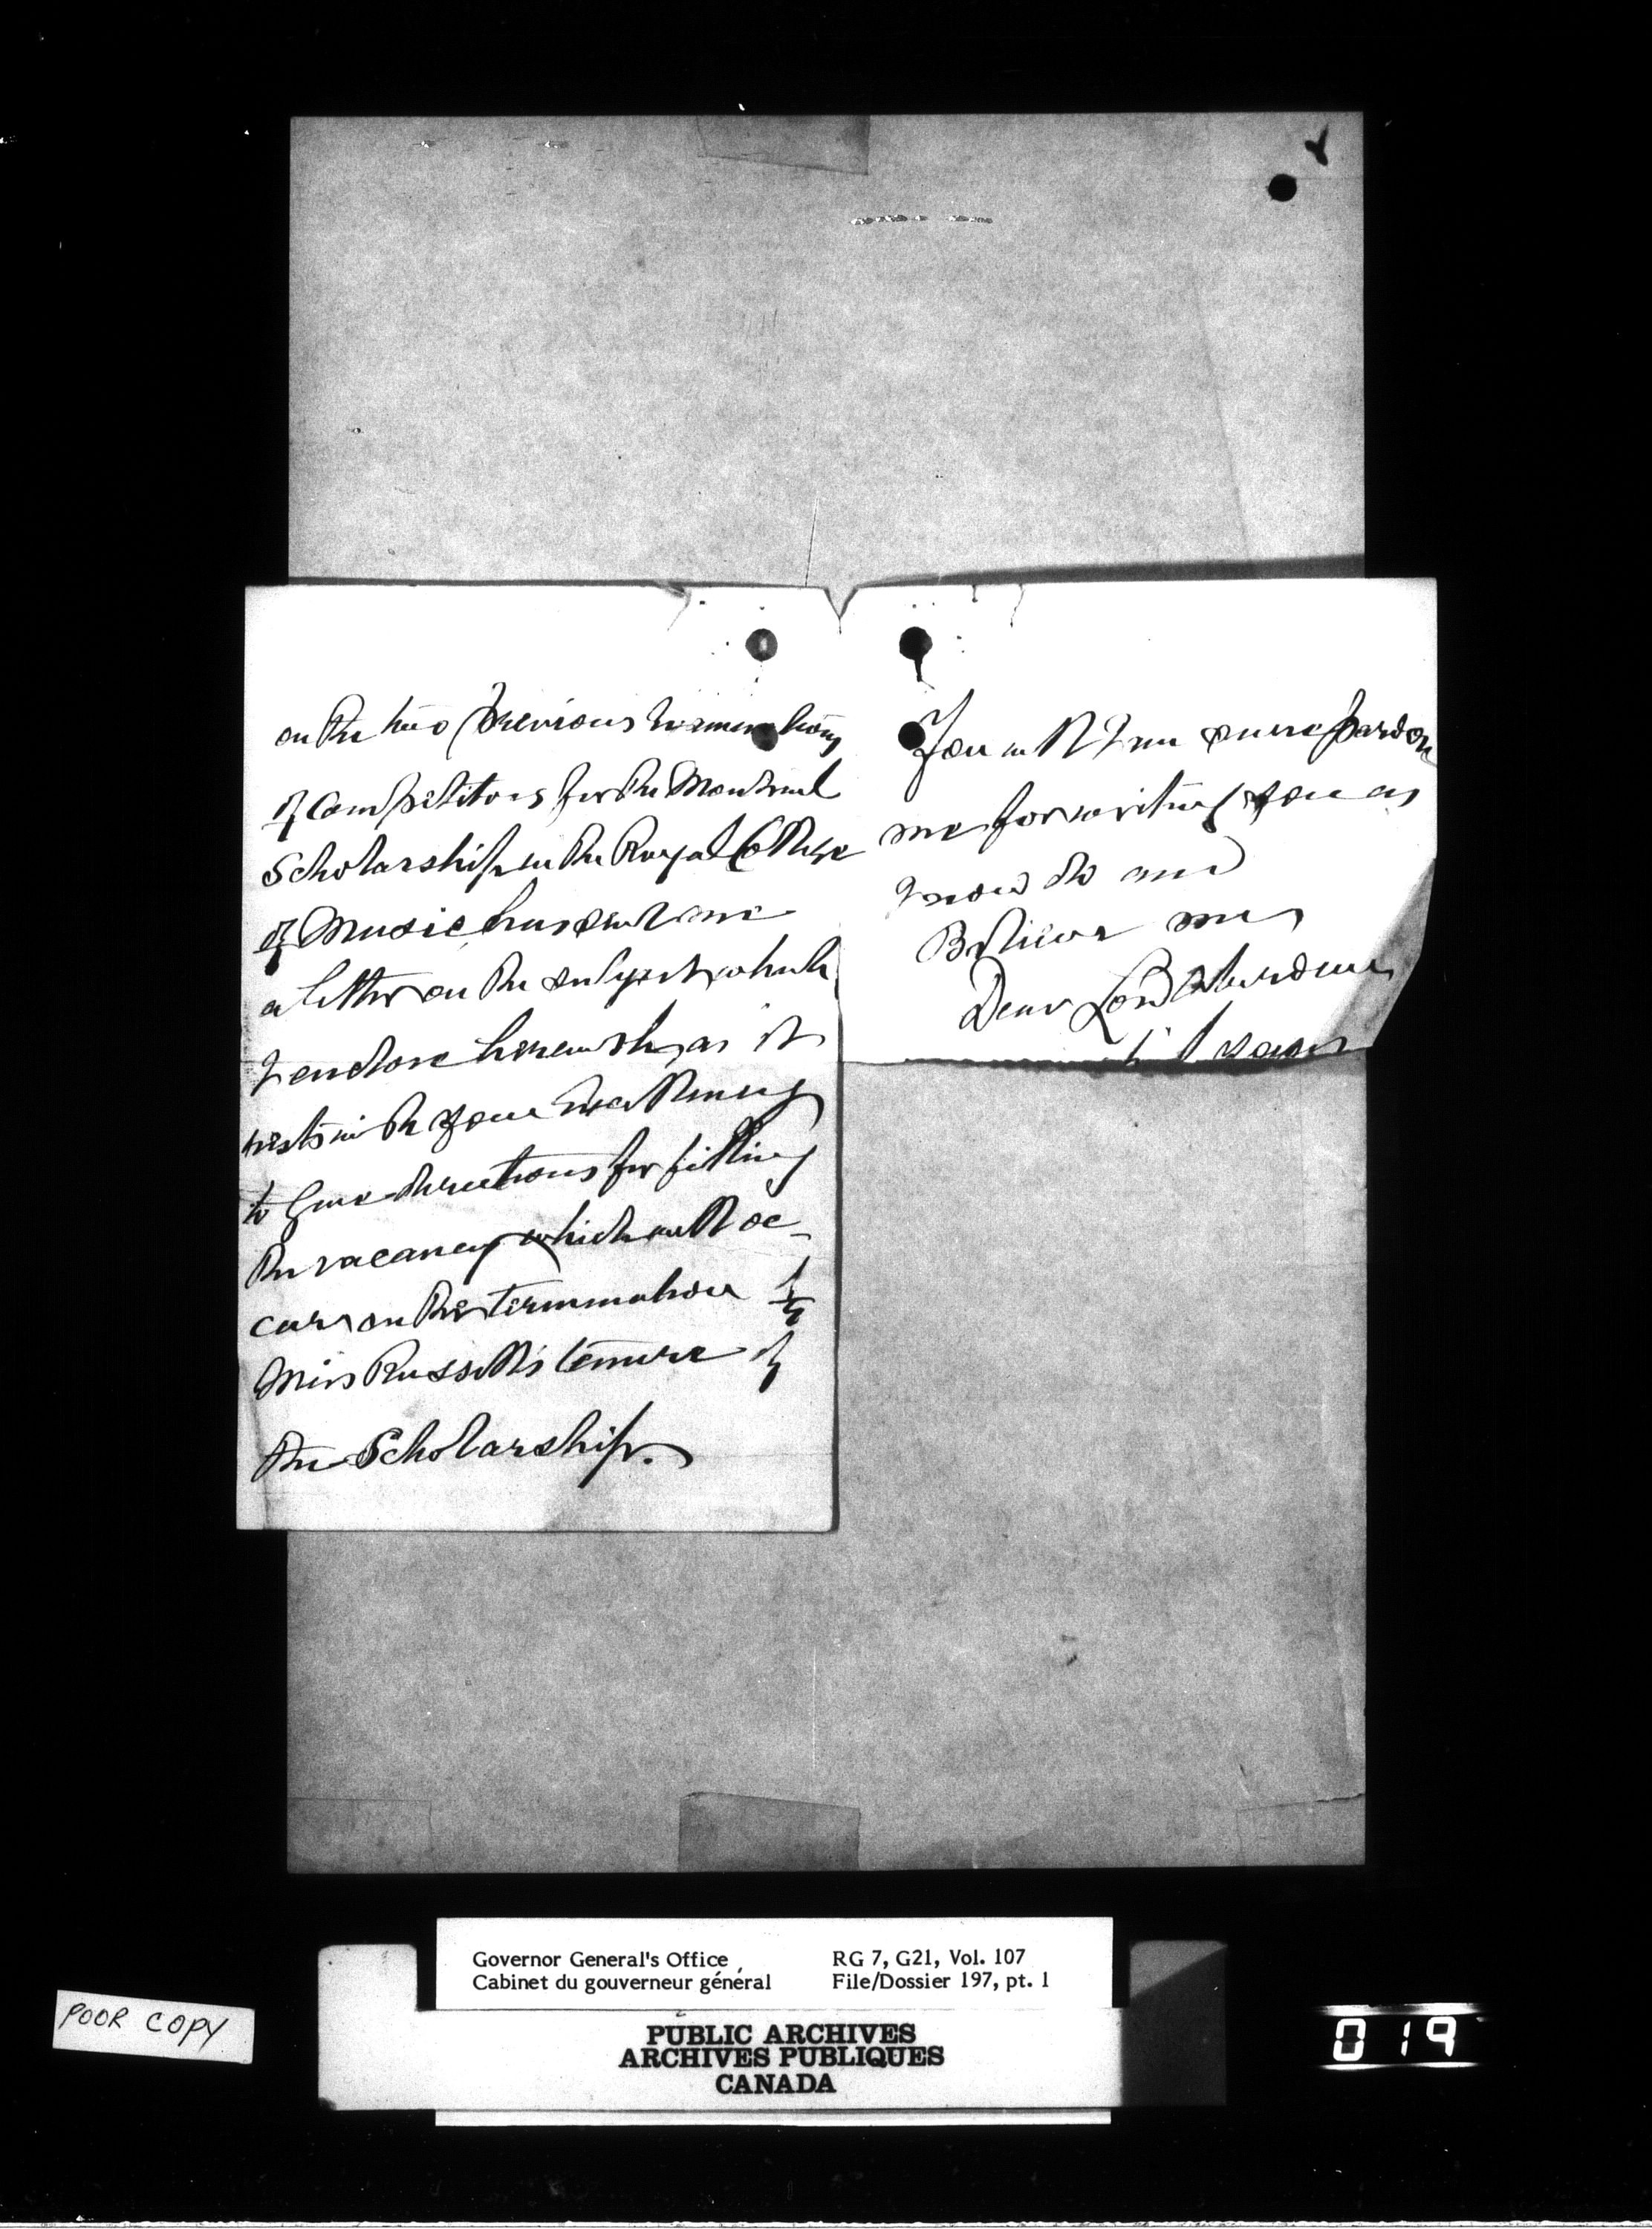 on the two previous Examinations
of Competitors for the Montreal
Scholarship in the Royal College
of Music has sent me
a letter on the subject which
I enclose herewith, as it
rests with your Excellency
to give directions for filling
the vacancy which will oc-
cur on the termination of
Miss Russell's tenure of
the Scholarship.
You will I am sure pardon
me for writing you as
I now do and
Believe me
Dear Lord Aberdeen
yours
Governor General's Office
Cabinet du gouverneur général
RG 7, G21, Vol. 107
File/Dossier 197, pt. 1
POOR COPY
PUBLIC ARCHIVES
ARCHIVES PUBLIQUES
CANADA
019